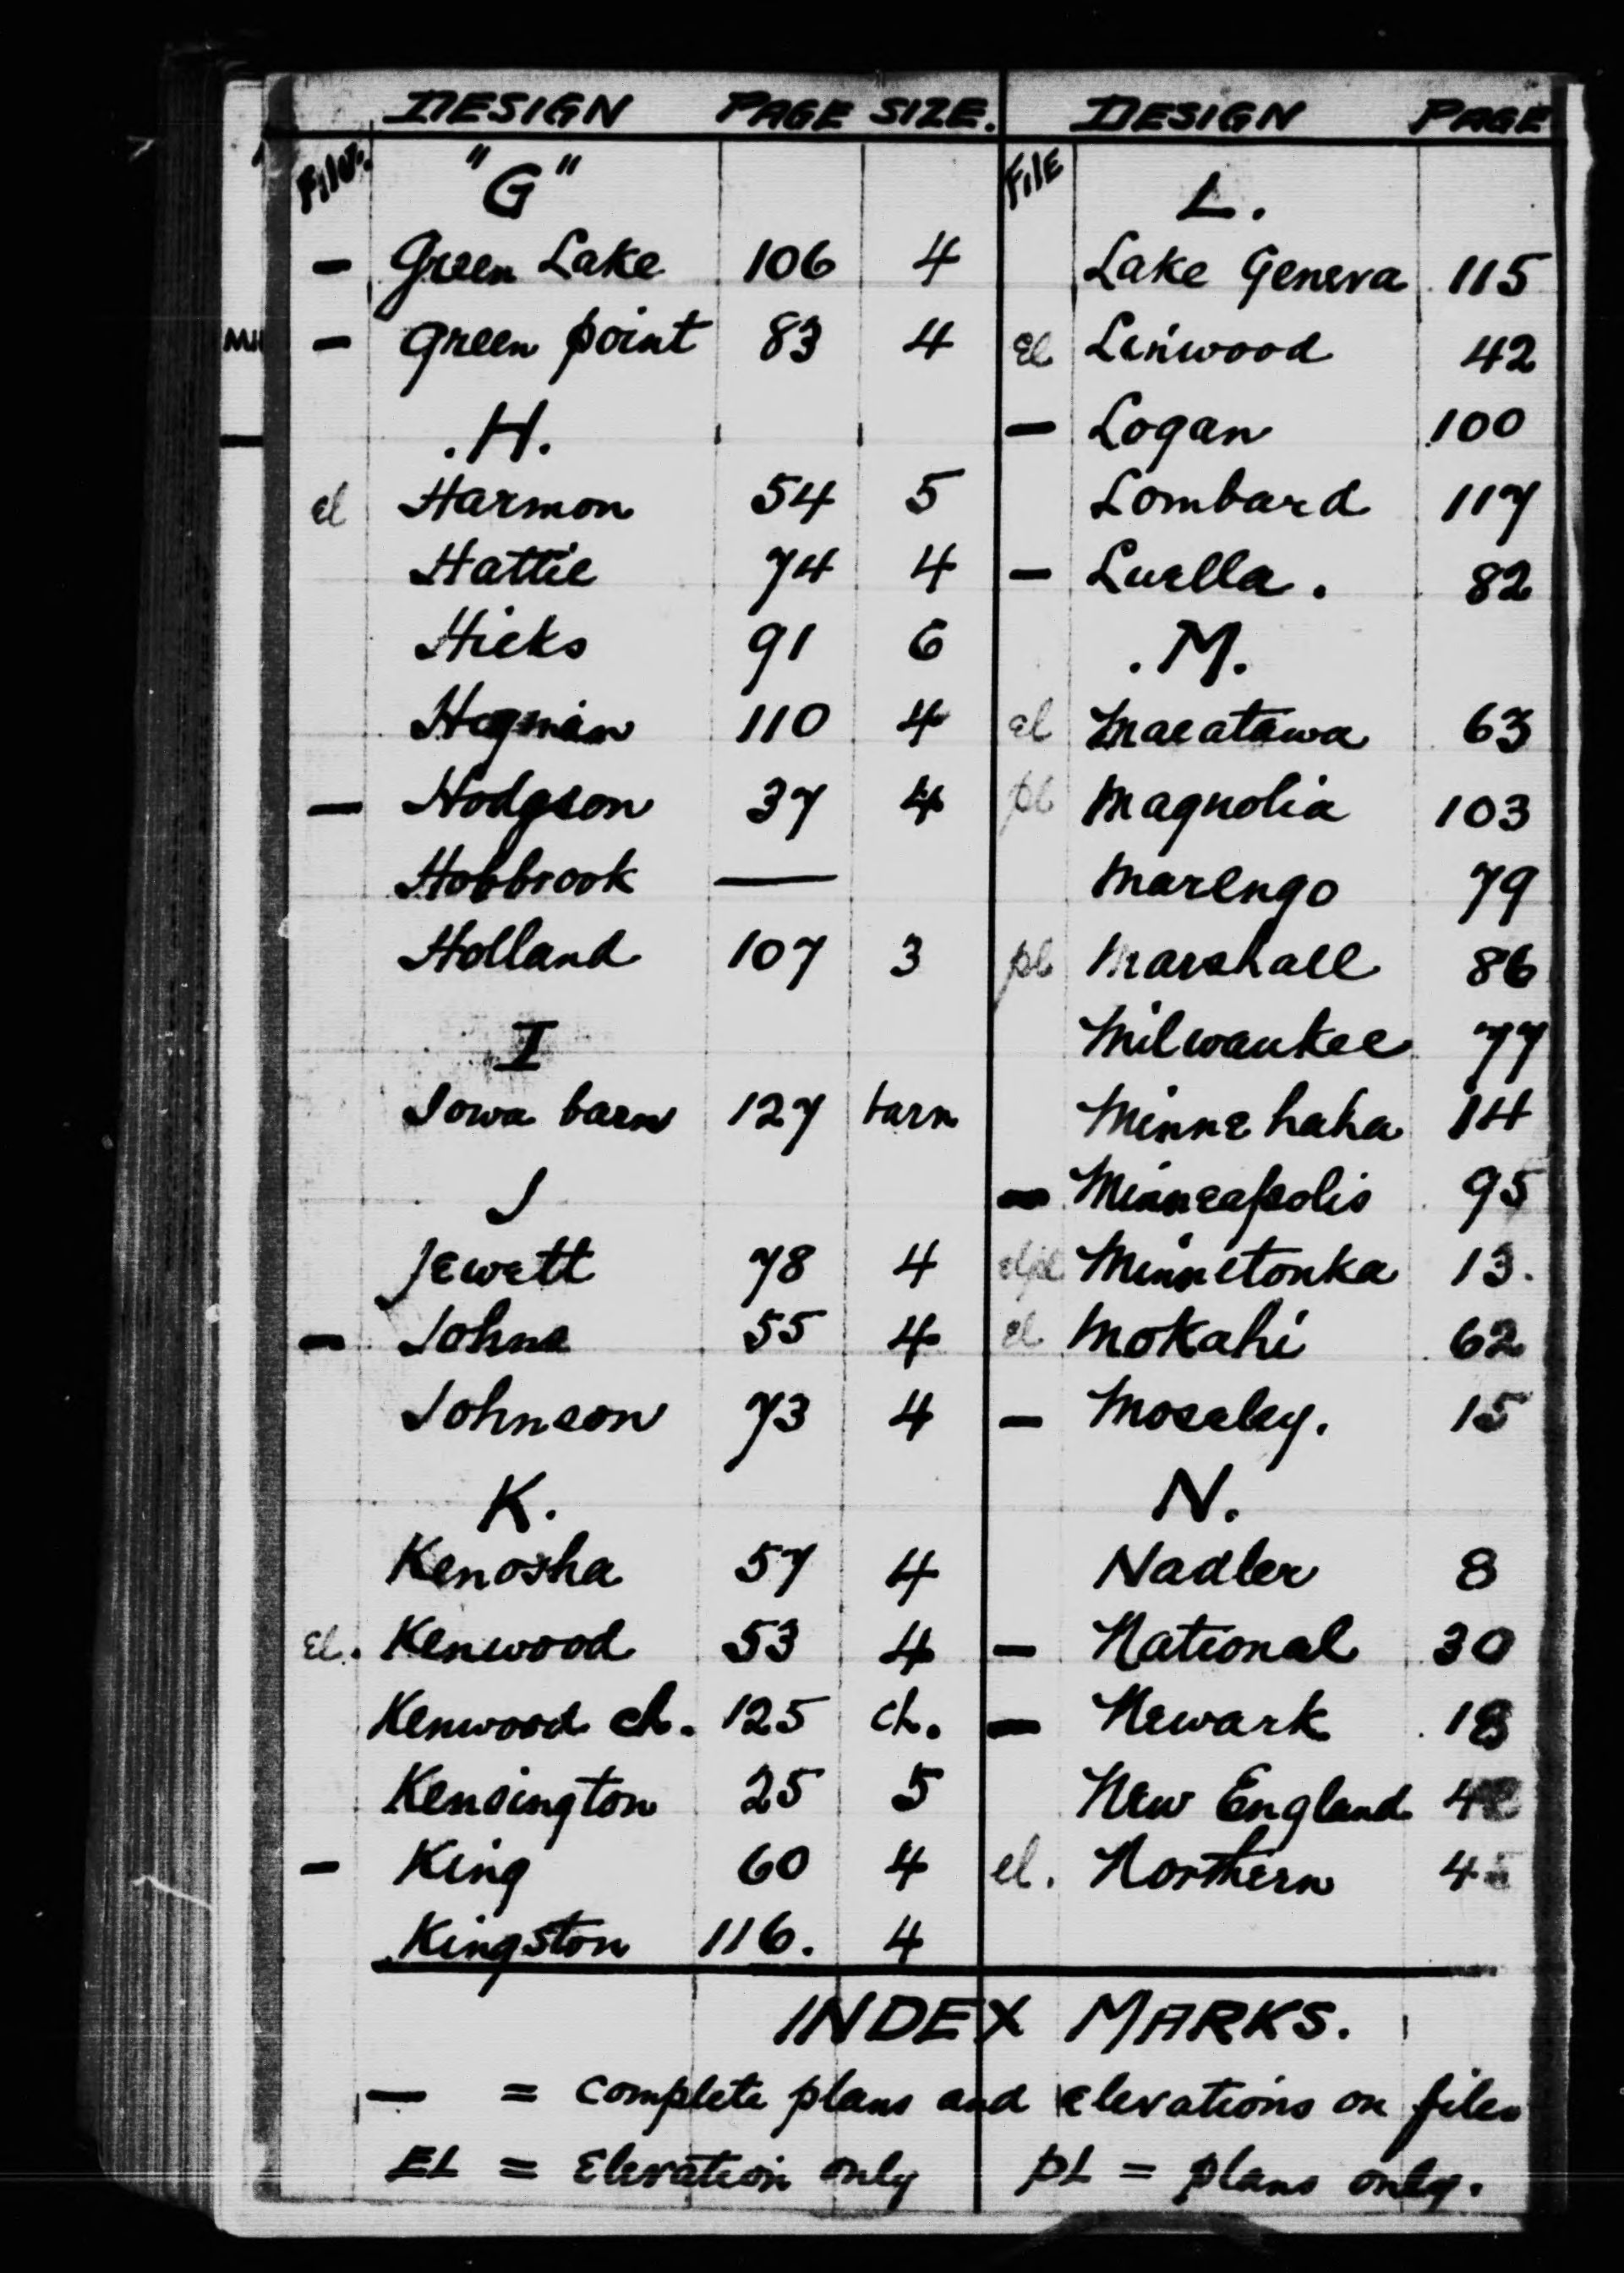 DESIGN PAGE SIZE.
File. "G"
— Green Lake 106 4
— Green point 83 4
.H.
el Harmon 54 5
Hattie 74 4
Hicks 91 6
Hegman 110 4
— Hodgson 37 4
Hobbrook —
Holland 107 3
I
Iowa barn 127 barn
J
Jewett 78 4
— Johns 55 4
Johnson 73 4
K.
Kenosha 57 4
el. Kenwood 53 4
Kenwood ch. 125 ch.
Kensington 25 5
— King 60 4
Kingston 116. 4
DESIGN PAGE
File L.
Lake Geneva 115
El Linwood 42
— Logan 100
Lombard 117
— Luella. 82
.M.
el Macatawa 63
pl Magnolia 103
Marengo 79
pl Marshall 86
Milwaukee 77
Minne haha 14
— Minneapolis 95
el pl Minnetonka 13.
el Mokahi 62
— Moseley. 15
N.
Nadler 8
— National 30
— Newark 18
New England
el. Northern
INDEX MARKS.
— = complete plans and elevations on file.
EL = Elevation only pL = plans only.